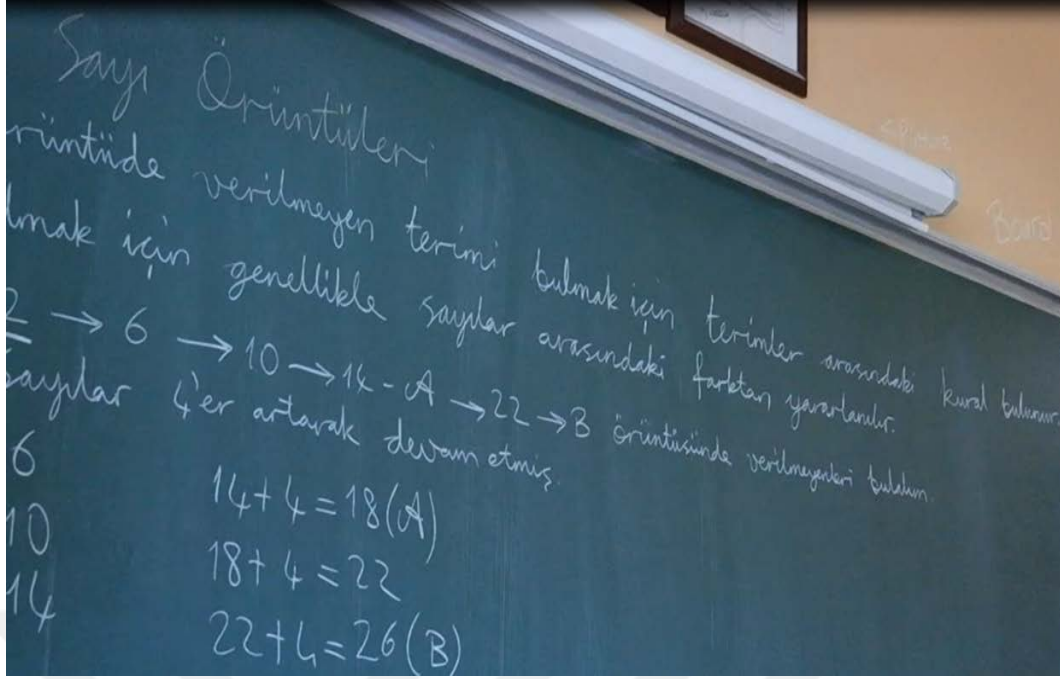 Sayı Örüntüleri
rüntüde verilmeyen terimi bulmak için terimler arasındaki kural bulunur.
lmak için genellikle sayılar arasındaki farktan yararlanılır.
2 → 6 → 10 → 14 - A → 22 → B örüntüsünde verilmeyenleri bulalım.
sayılar 4'er artarak devam etmiş.
6
10
14
14+4=18(A)
18+4=22
22+4=26(B)
Board